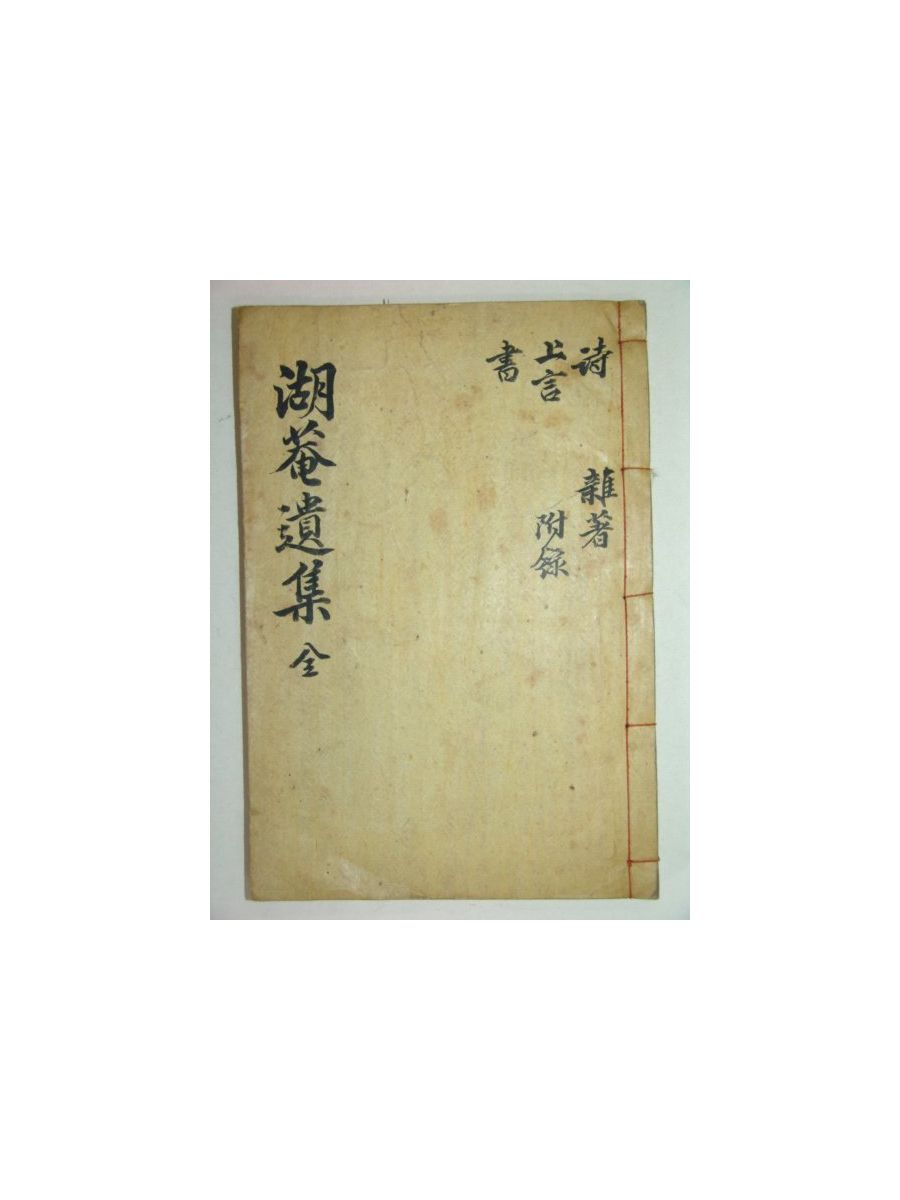 詩
上言
書
雜著
附錄
湖菴遺集 全